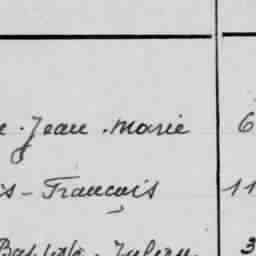 e. Jean. Marie 6
is-François 11
Baptiste. Julien. 3